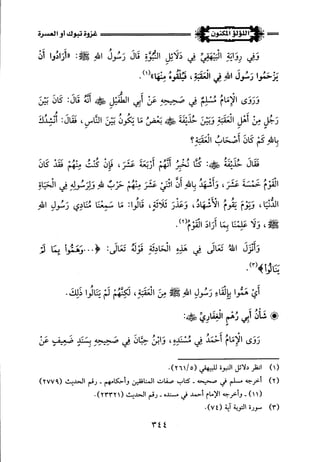 اللؤلؤ المكنون
غزوة تبوك أو العسرة
وَفِي رِوَايَةِ الْبَيْهَقِيِّ فِي دَلَائِلِ النُّبُوَّةِ قَالَ رَسُولُ اللهِ ﷺ: «أَرَادُوا أَنْ
يَزْحَمُوا رَسُولَ اللهِ فِي الْعَقَبَةِ، فَيُلْقُوهُ مِنْهَا»(١).
وَرَوَى الْإِمَامُ مُسْلِمٌ فِي صَحِيحِهِ عَنْ أَبِي الطُّفَيْلِ ﷺ أَنَّهُ قَالَ: كَانَ بَيْنَ
رَجُلٍ مِنْ أَهْلِ الْعَقَبَةِ وَبَيْنَ حُذَيْفَةَ ﷺ بَعْضُ مَا يَكُونُ بَيْنَ النَّاسِ، فَقَالَ: أَنْشُدُكَ
بِاللهِ كَمْ كَانَ أَصْحَابُ الْعَقَبَةِ؟
فَقَالَ حُذَيْفَةُ ﷺ: كُنَّا نُخْبَرُ أَنَّهُمْ أَرْبَعَةَ عَشَرَ، فَإِنْ كُنْتَ مِنْهُمْ فَقَدْ كَانَ
الْقَوْمُ خَمْسَةَ عَشَرَ، وَأَشْهَدُ بِاللهِ أَنَّ اثْنَيْ عَشَرَ مِنْهُمْ حَرْبٌ للهِ وَلِرَسُولِهِ فِي الْحَيَاةِ
الدُّنْيَا، وَيَوْمَ يَقُومُ الْأَشْهَادُ، وَعَذَرَ ثَلَاثَةً، قَالُوا: مَا سَمِعْنَا مُنَادِيَ رَسُولِ اللهِ
ﷺ، وَلَا عَلِمْنَا بِمَا أَرَادَ الْقَوْمُ(٢).
وَأَنْزَلَ اللهُ تَعَالَى فِي هَذِهِ الْحَادِثَةِ قَوْلَهُ تَعَالَى: ﴿... وَهَمُّوا بِمَا لَمْ
يَنَالُوا﴾(٣).
أَيْ هَمُّوا بِإِلْقَاءِ رَسُولِ اللهِ ﷺ مِنَ الْعَقَبَةِ، لَكِنَّهُمْ لَمْ يَنَالُوا ذَلِكَ.
◉ شَأْنُ أَبِي رُهْمٍ الْغِفَارِيِّ ﷺ:
رَوَى الْإِمَامُ أَحْمَدُ فِي مُسْنَدِهِ، وَابْنُ حِبَّانَ فِي صَحِيحِهِ بِسَنَدٍ ضَعِيفٍ عَنْ
(١) انظر دلائل النبوة للبيهقي (٢٦١/٥).
(٢) أخرجه مسلم في صحيحه - كتاب صفات المنافقين وأحكامهم - رقم الحديث (٢٧٧٩)
(١١) - وأخرجه الإمام أحمد في مسنده - رقم الحديث (٢٣٣٢١).
(٣) سورة التوبة آية (٧٤).
٣٤٤